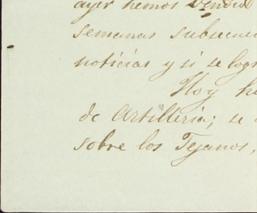 ayer hemos vendid
semanas subsecuen
noticias y si se logr
Hoy h
de Artilleria; se
sobre los Tejanos,